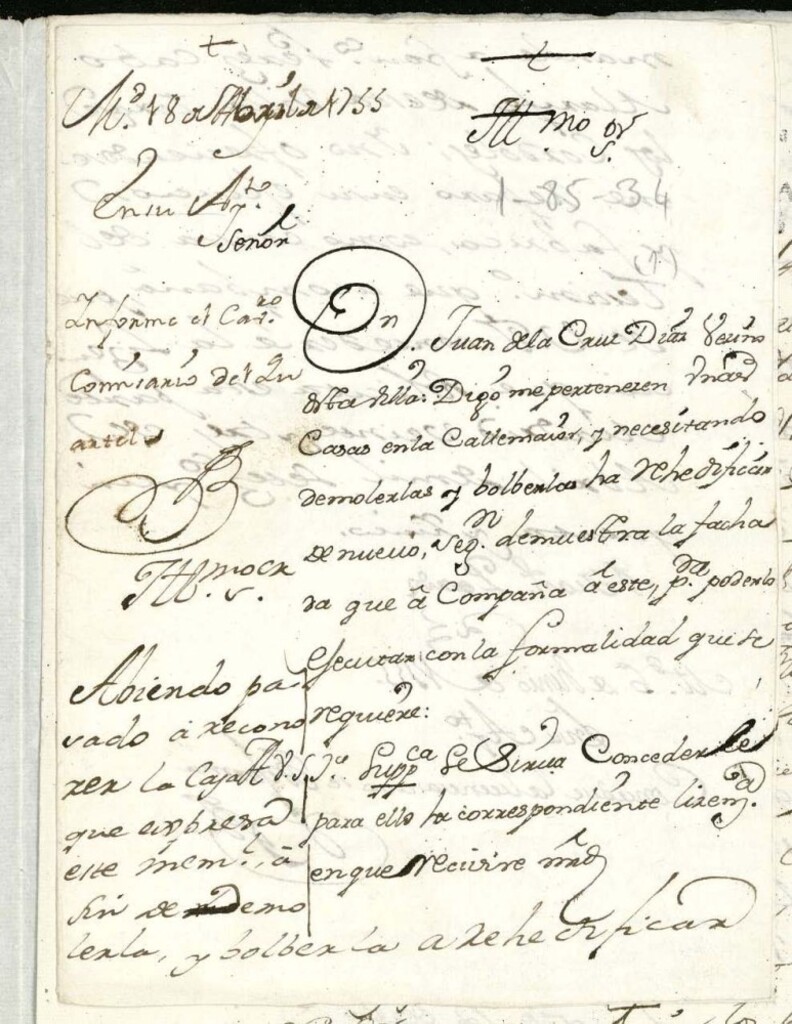 M.d 18 de Abril de 1755
En su Ay.to
Señor
Informe el Cav.ro
Comisario del Qu
artel
Ill.mo Sr
1-85-34
(1)
Dn. Juan de la Cruz Diaz Vecino
desta Villa: Digo me pertenezen Unas
Casas en la Calle maior, y necesitando
demolerlas y bolberlas ha Rehedificar
de nuevo, Segn. demuestra la facha
da que â Compaña â este, pa. poderlo
esecutar con la formalidad que se
requiere:
A V.S. Yo. Suppca Se Sirva Concederle
para ello ha correspondiente lizenza.
en que Recivire mrd
Ill.mo Sr.
Abiendo pa
sado a recono
zer la Casa
que expresa
este mem.l, â
fin de demo
lerla, y bolberla a Rehedificar